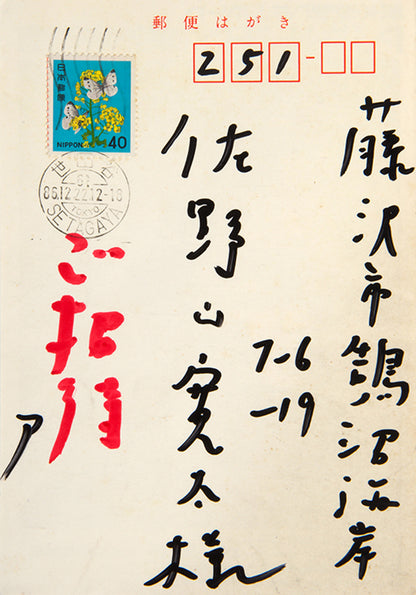 郵便はがき
251-
藤沢市鵠沼海岸
7-6
-19
佐野山寛太様
日本郵便
NIPPON 40
世田谷
61
86.12.22.12-18
TOKYO
SETAGAYA
ご招待
ア